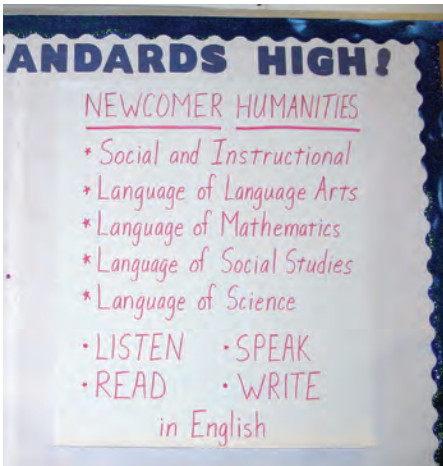 ANDARDS HIGH!
NEWCOMER HUMANITIES
* Social and Instructional
* Language of Language Arts
* Language of Mathematics
* Language of Social Studies
* Language of Science
• LISTEN • SPEAK
• READ • WRITE
in English